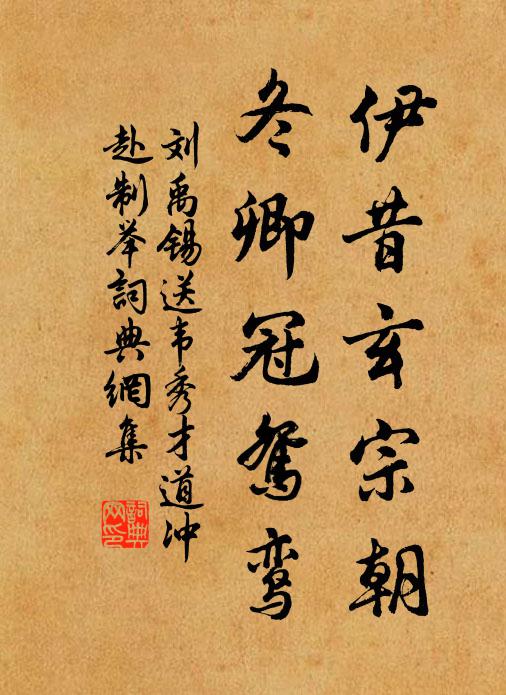 伊昔玄宗朝
冬卿冠鸳鸾
刘禹锡送韦秀才道冲
赴制举詞典網集
詞典网印